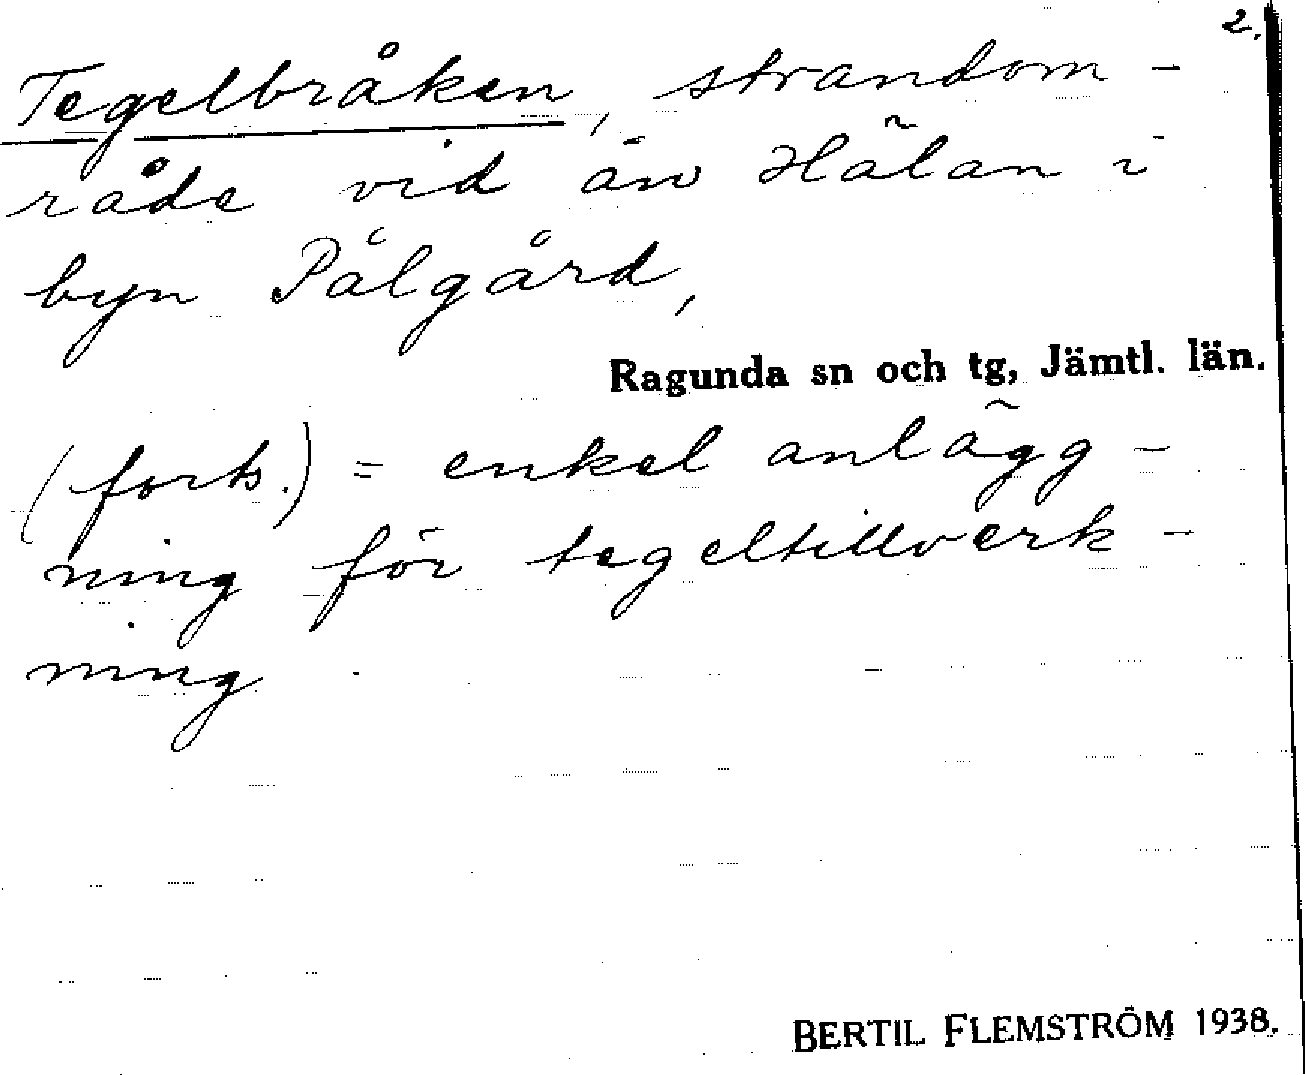 2.
Tegelbråken, strandom-
råde vid ån Hälan i
byn Pålgård,
Ragunda sn och tg, Jämtl. län.
(forts.) = enkel anlägg-
ning för tegeltillverk-
ning.
BERTIL FLEMSTRÖM 1938.